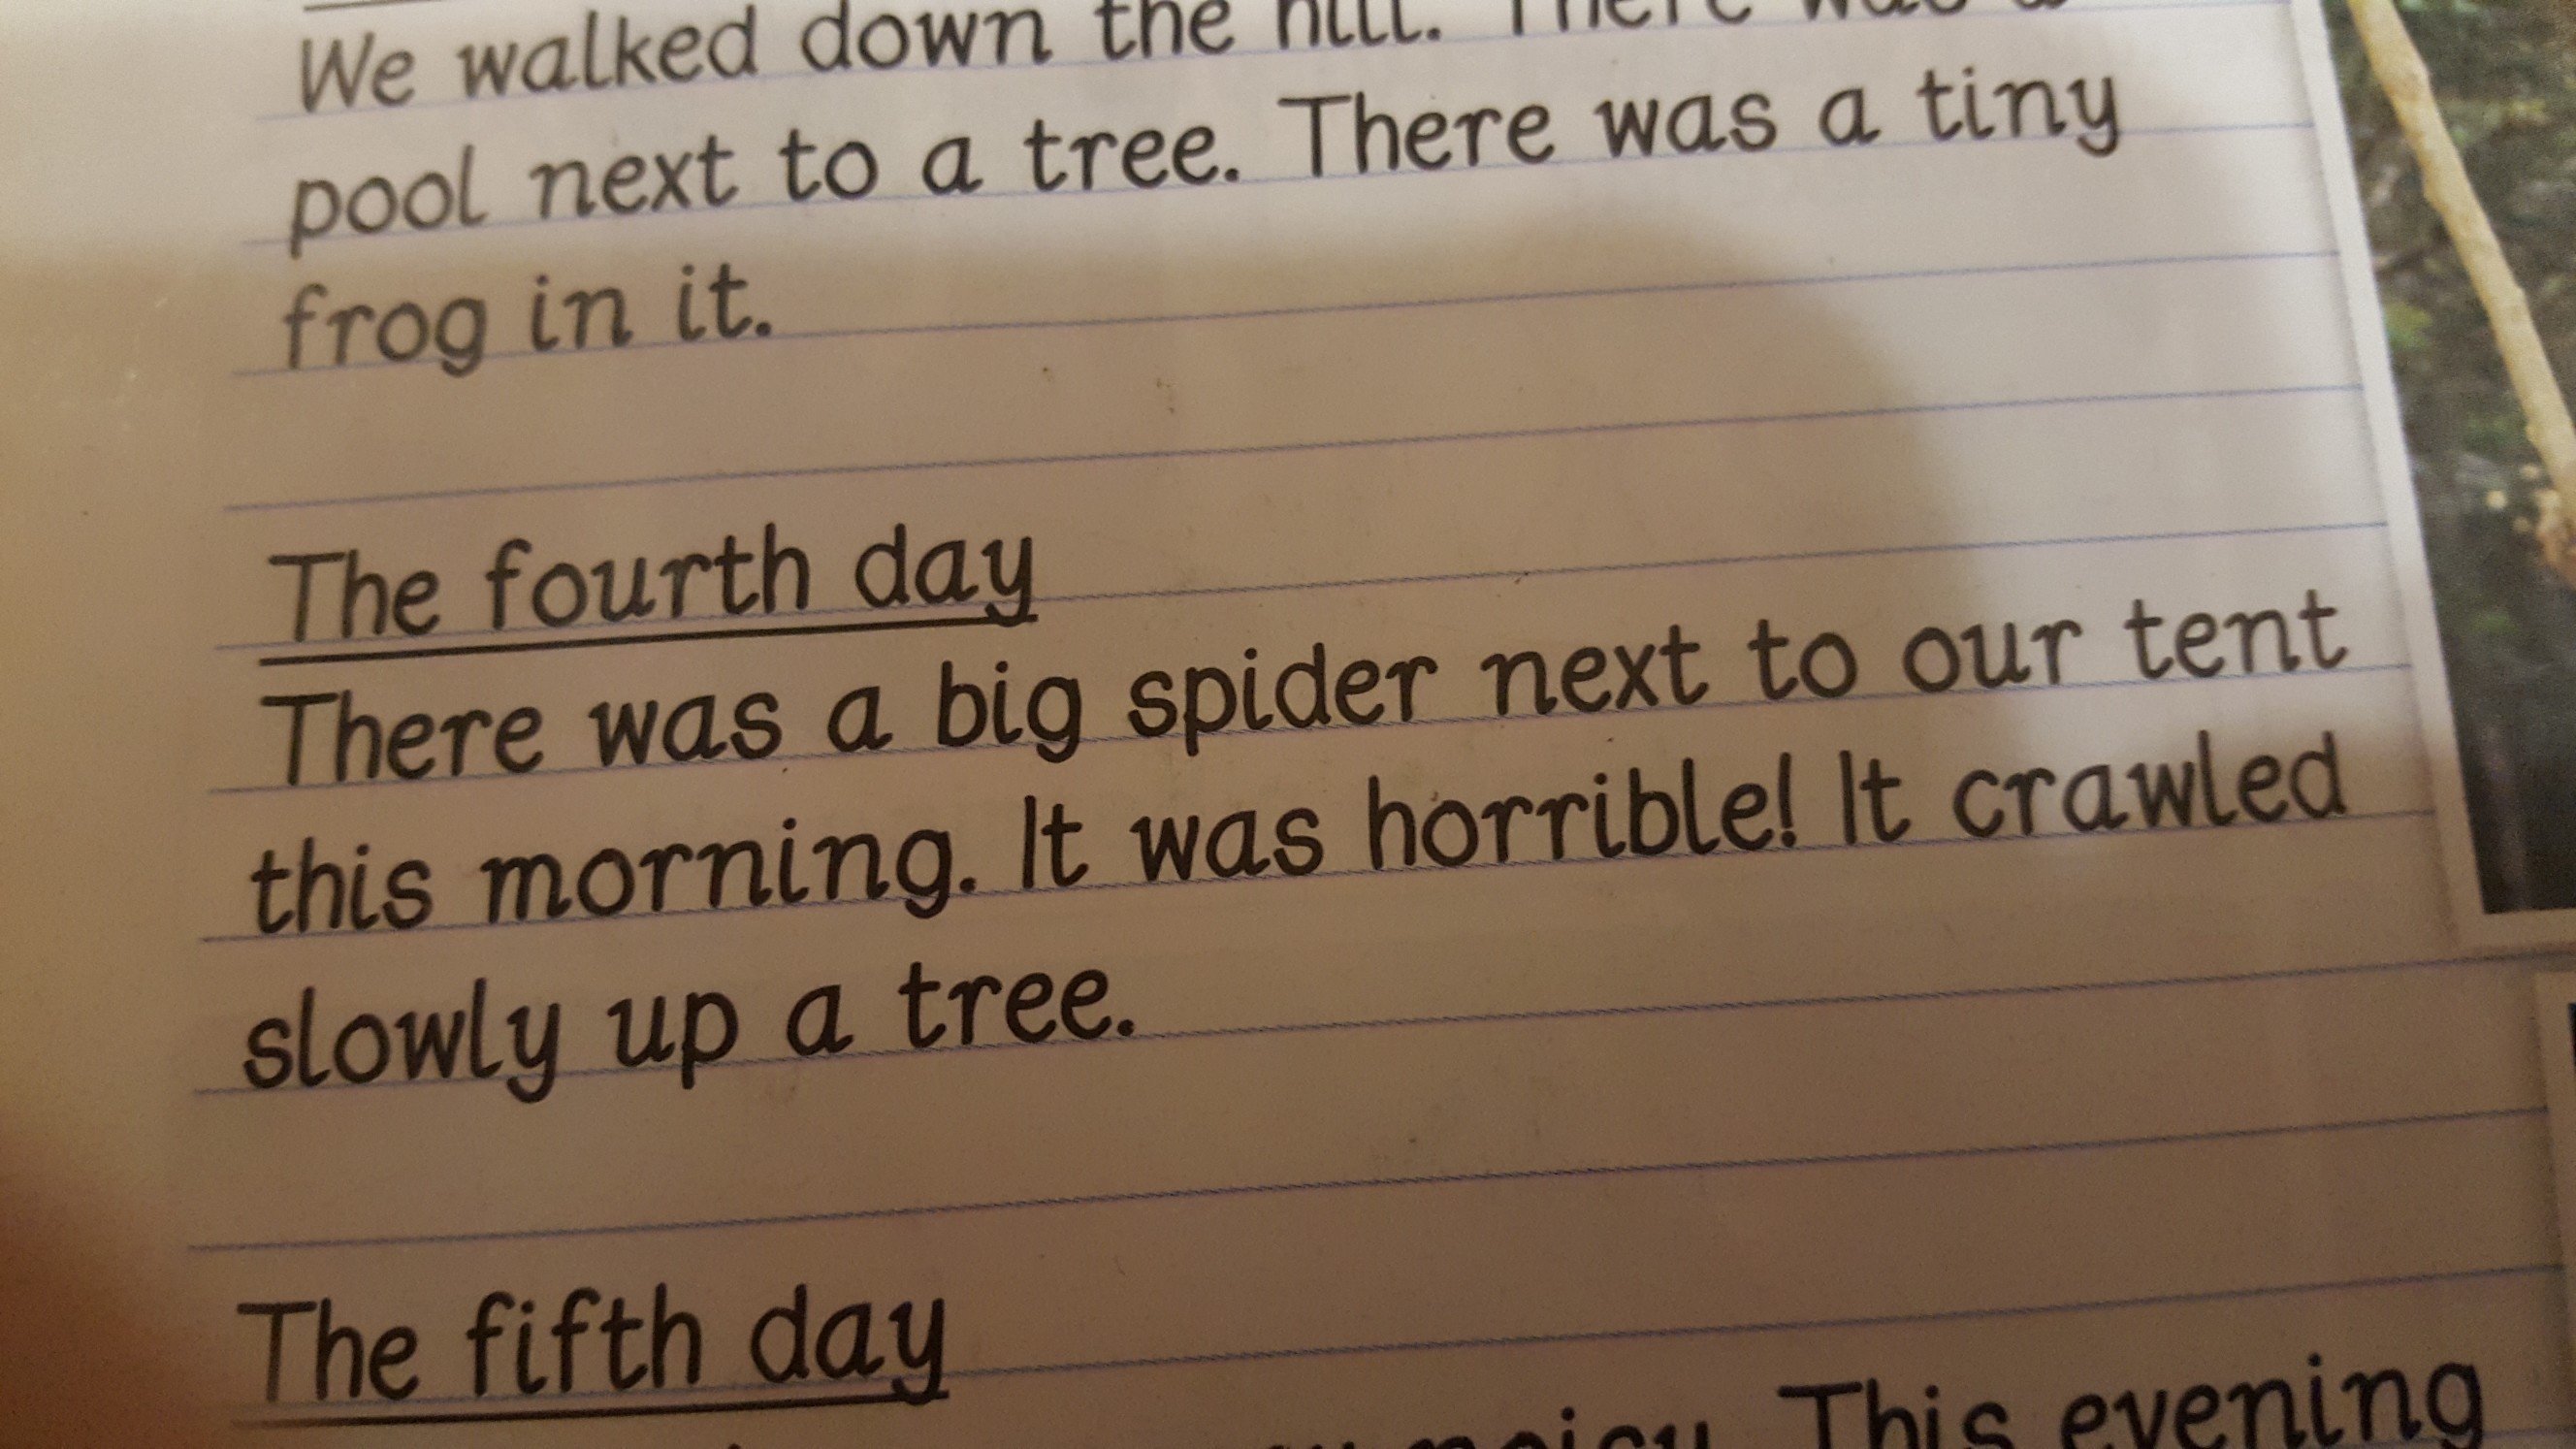 We walked down the hill. There was a
pool next to a tree. There was a tiny
frog in it.
The fourth day
There was a big spider next to our tent
this morning. It was horrible! It crawled
slowly up a tree.
The fifth day
noisy. This evening